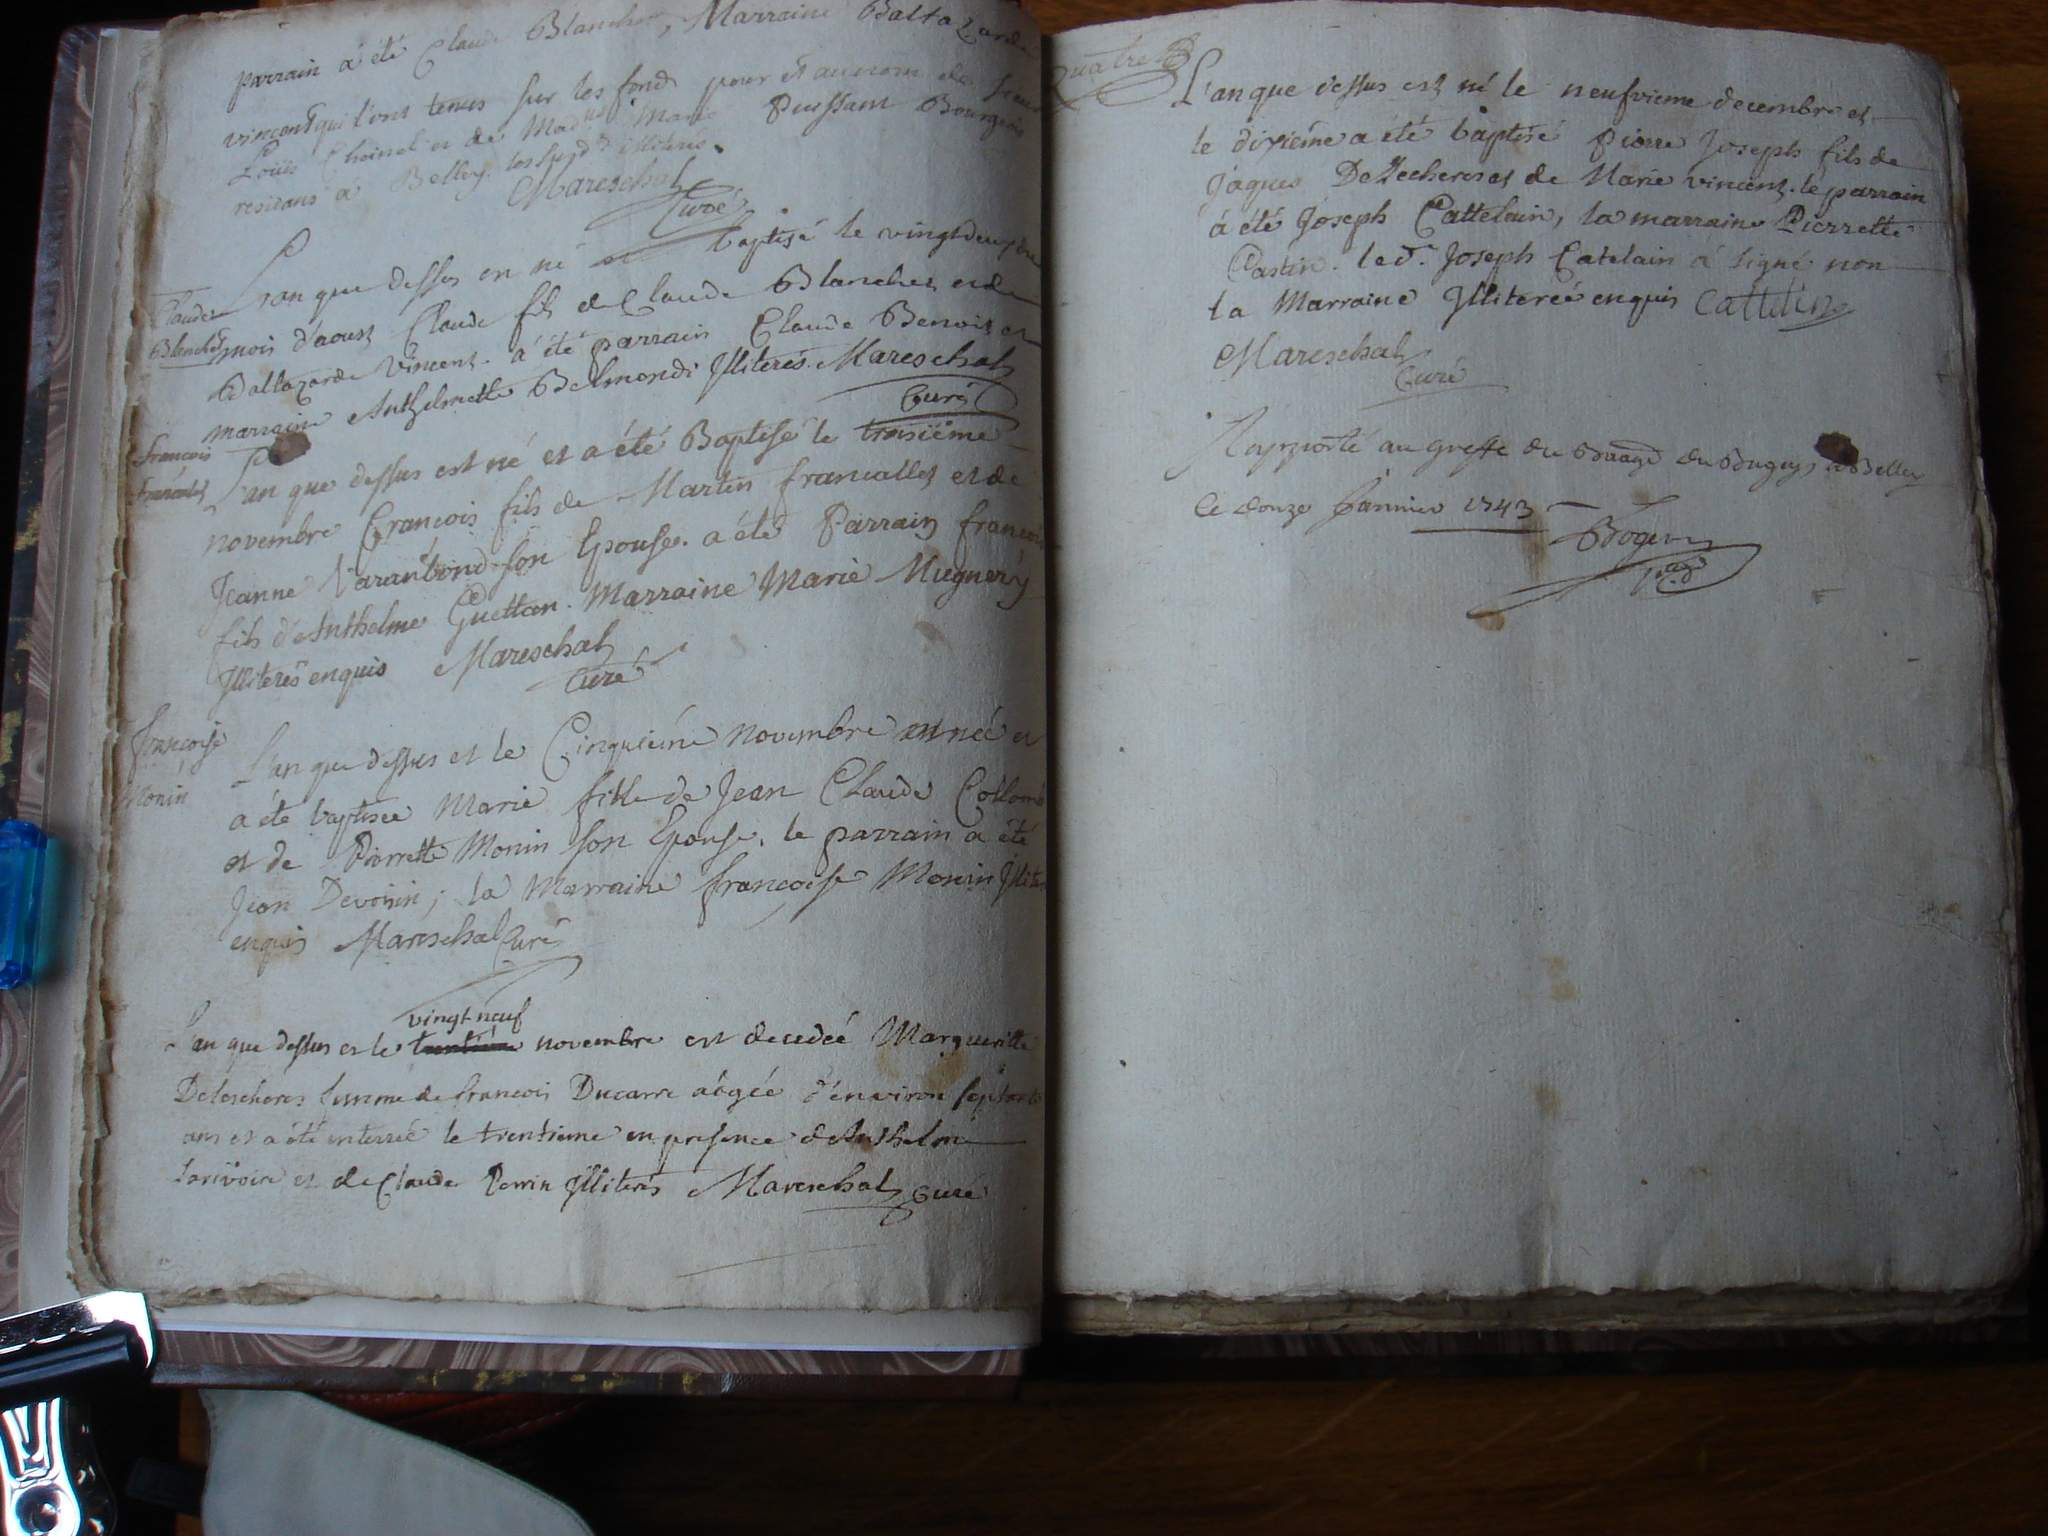 parrain a été Claude Blanchet, Marraine Baltazarde
vincent qui l'ont tenus sur les fonds pour et au nom de Sieur
Loüis Choinel et de Mad.lle Marie Puissant Bourgeois
residans à Belley les susd.ts illiterés.
Mareschal
Curé
L'an que dessus est né et baptisé le vingtdeux du
Claude
Blanchet
mois d'aoust Claude fils de Claude Blanchet et de
Baltazarde Vincent. a été parrain Claude Benoit et
marraine Anthelmette Belmondi Illiterés. Mareschal
Curé
François
Francallet
L'an que dessus est né et a été Baptisé le troisiéme
novembre François fils de Martin francallet et de
Jeanne Varambond son Epouse. a été Parrain françois
fils d'Anthelme Guettan. Marraine Marie Mugnery
Illiterés enquis Mareschal
Curé
françoise
Monin
L'an que dessus et le Cinquiéme novembre est née et
a été baptisée Marie fille de Jean Claude Collomb
et de Pierrette Monin son Epouse. le parrain a été
Jean Devoisin; la Marraine françoise Monin Illiterés
enquis Mareschal Curé
vingt neuf
L'an que dessus et le trentiéme novembre est decedeé Margueritte
Delescheres femme de francois Ducarre aâgée d'énviron septante
ans et a été interreé le trentieme en presence d'Anthelme
Larivoire et de Claude Perrin Illiterés Mareschal curé
quatre
L'an que dessus est né le neufvieme decembre et
le dixiéme a été baptisé Pierre Joseph fils de
Jaques Delecheres et de Marie vincent. le parrain
à été Joseph Cattelain, la marraine Pierrette
Castin. led.t Joseph Catelain à signé non
la Marraine Illitereé enquis Cattelin
Mareschal
Curé
Rapporté au Greffe du Baage du Bugey à Belley
le douze Janvier 1743